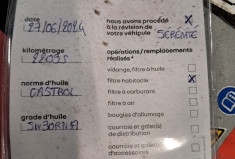 date
27/06/2024
nous avons procédé
à la révision de
votre véhicule SÉRÉNITÉ
kilométrage
opérations/remplacements
réalisés*
vidange, filtre à huile
norme d'huile
filtre habitacle X
CASTROL
filtre à carburant
filtre à air
grade d'huile
bougies d'allumage
courroie et galet(s)
de distribution
courroie et galet(s)
d'accessoires